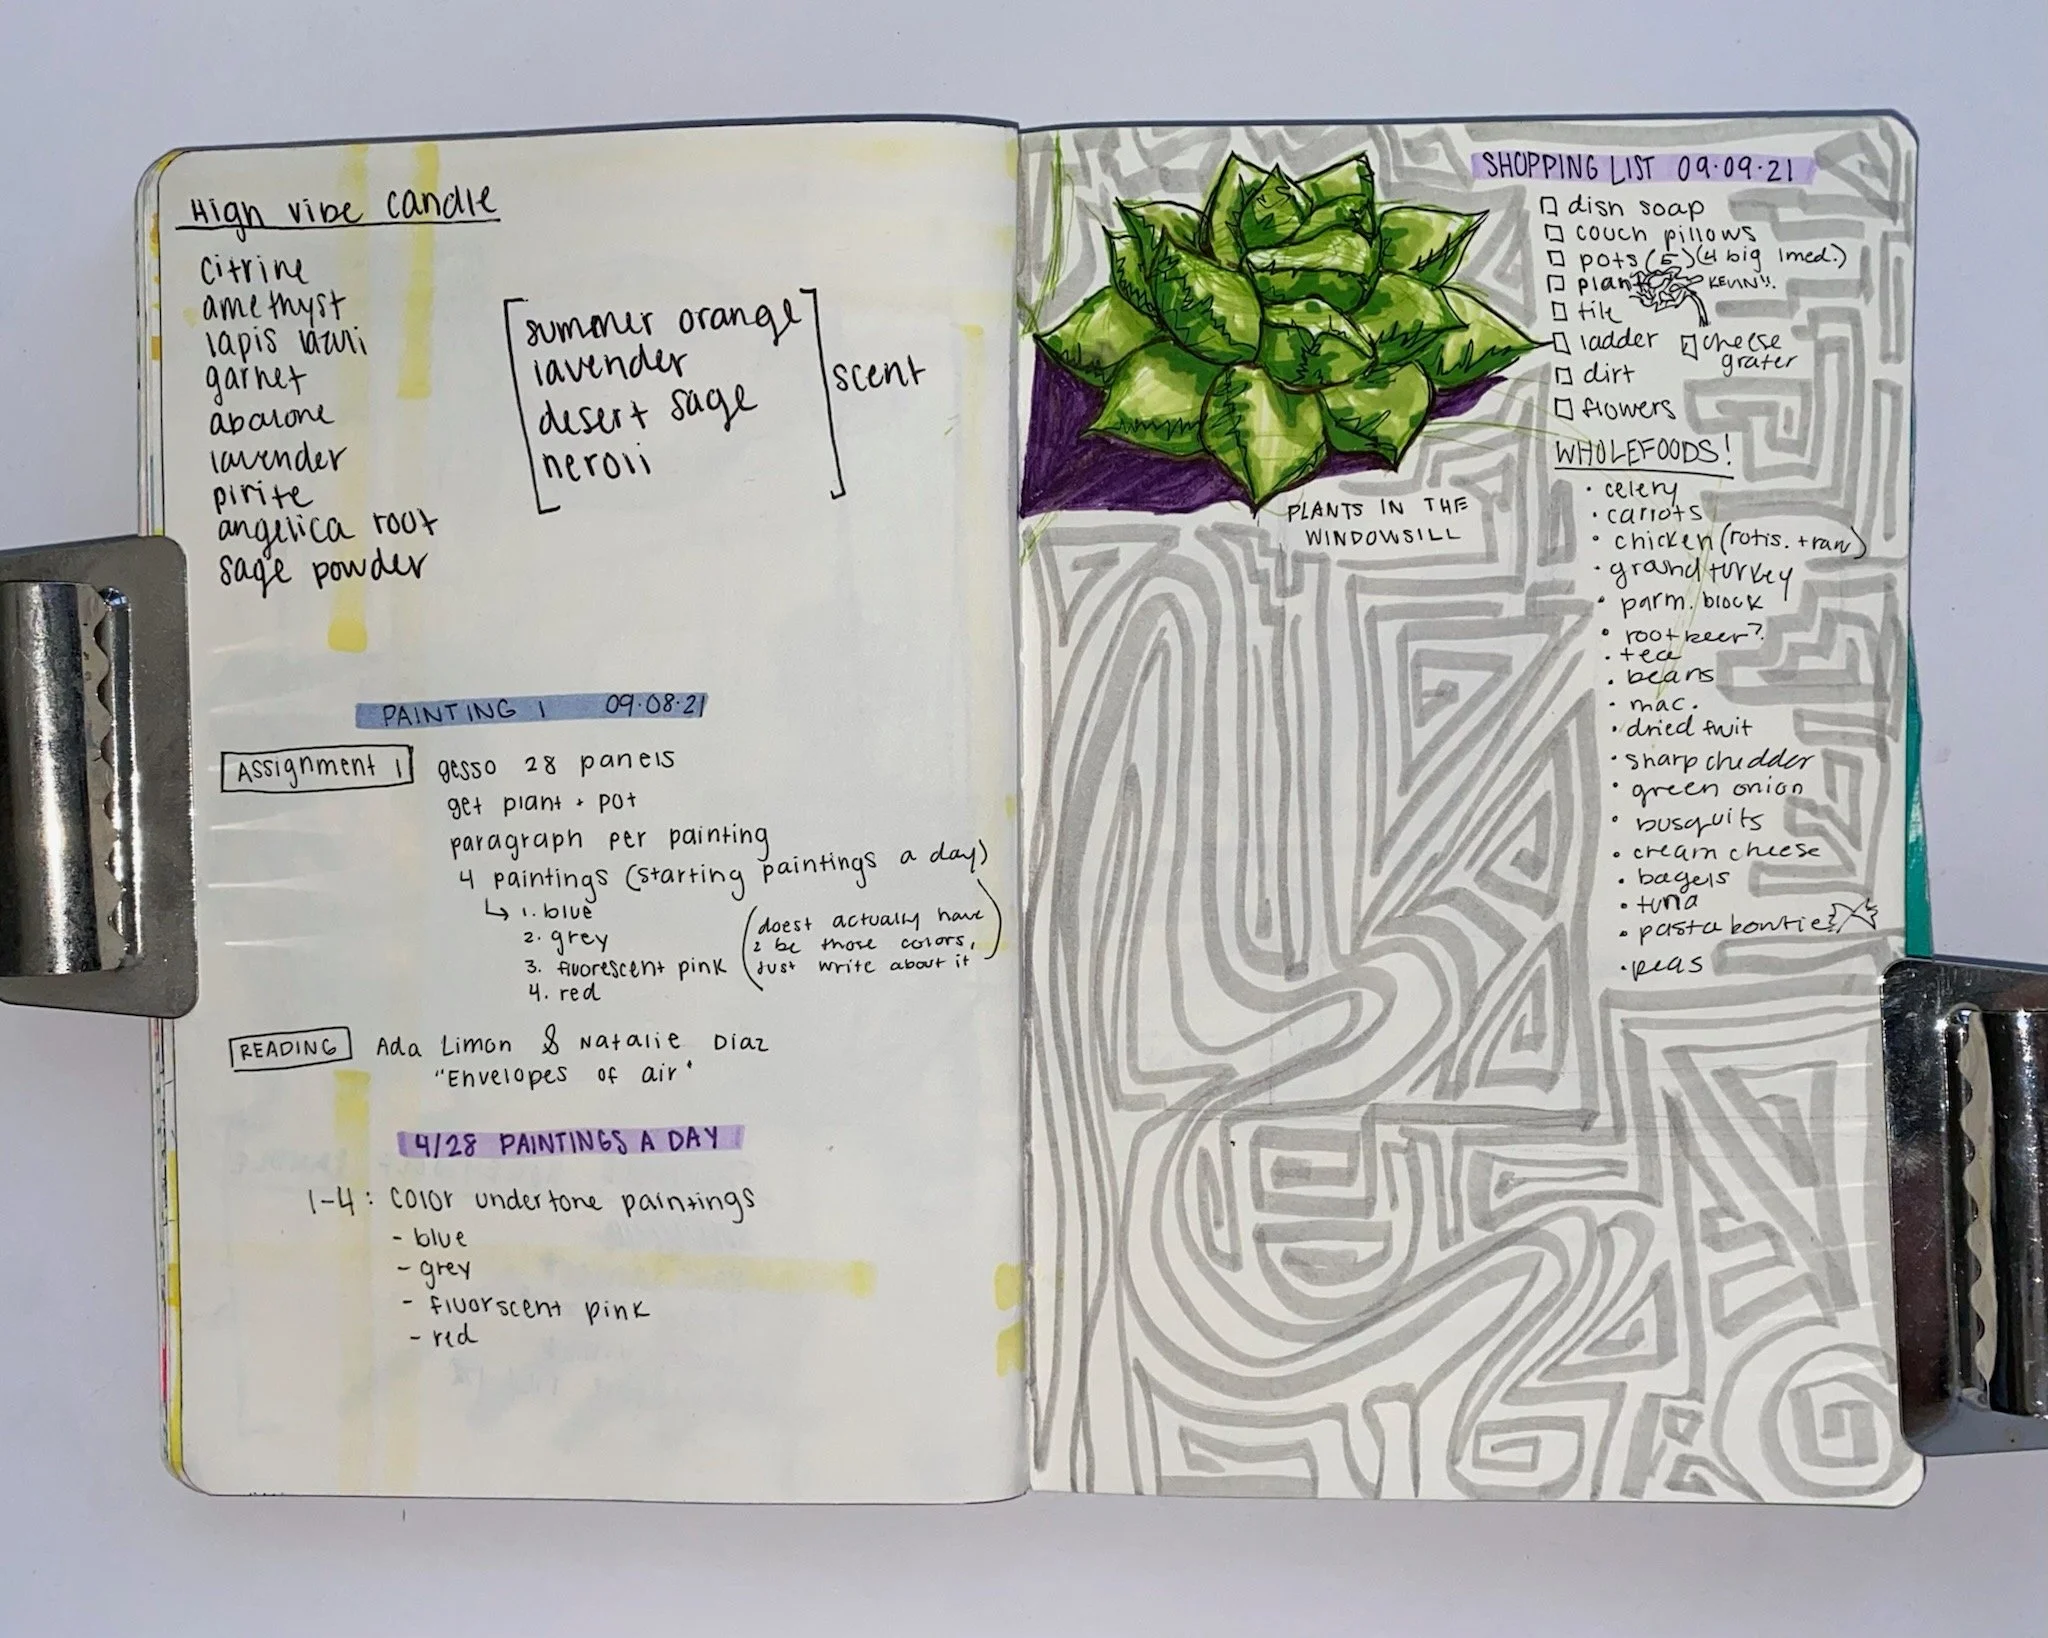 High vibe candle
citrine
amethyst
lapis lazuli
garnet
abalone
lavender
pirite
angelica root
sage powder
summer orange
lavender
desert sage
neroli
scent
PAINTING 1 09.08.21
Assignment 1
gesso 28 panels
get plant + pot
paragraph per painting
4 paintings (starting paintings a day)
↳ 1. blue
2. grey
3. fluorescent pink
4. red
(doest actually have
2 be those colors,
Just write about it)
READING
Ada Limon & Natalie Diaz
"Envelopes of air"
4/28 PAINTINGS A DAY
1-4: Color undertone paintings
- blue
- grey
- fluorscent pink
- red
PLANTS IN THE
WINDOWSILL
SHOPPING LIST 09.09.21
dish soap
couch pillows
pots (5) (4 big 1 med.)
plant KEVIN!!
tile
ladder
cheese
grater
dirt
flowers
WHOLEFOODS!
• celery
• carrots
• chicken (rotis. + raw)
• ground turkey
• parm. block
• root beer?
• tea
• beans
• mac.
• dried fruit
• sharp chedder
• green onion
• busquits
• cream cheese
• bagels
• tuna
• pasta bowtie
• peas